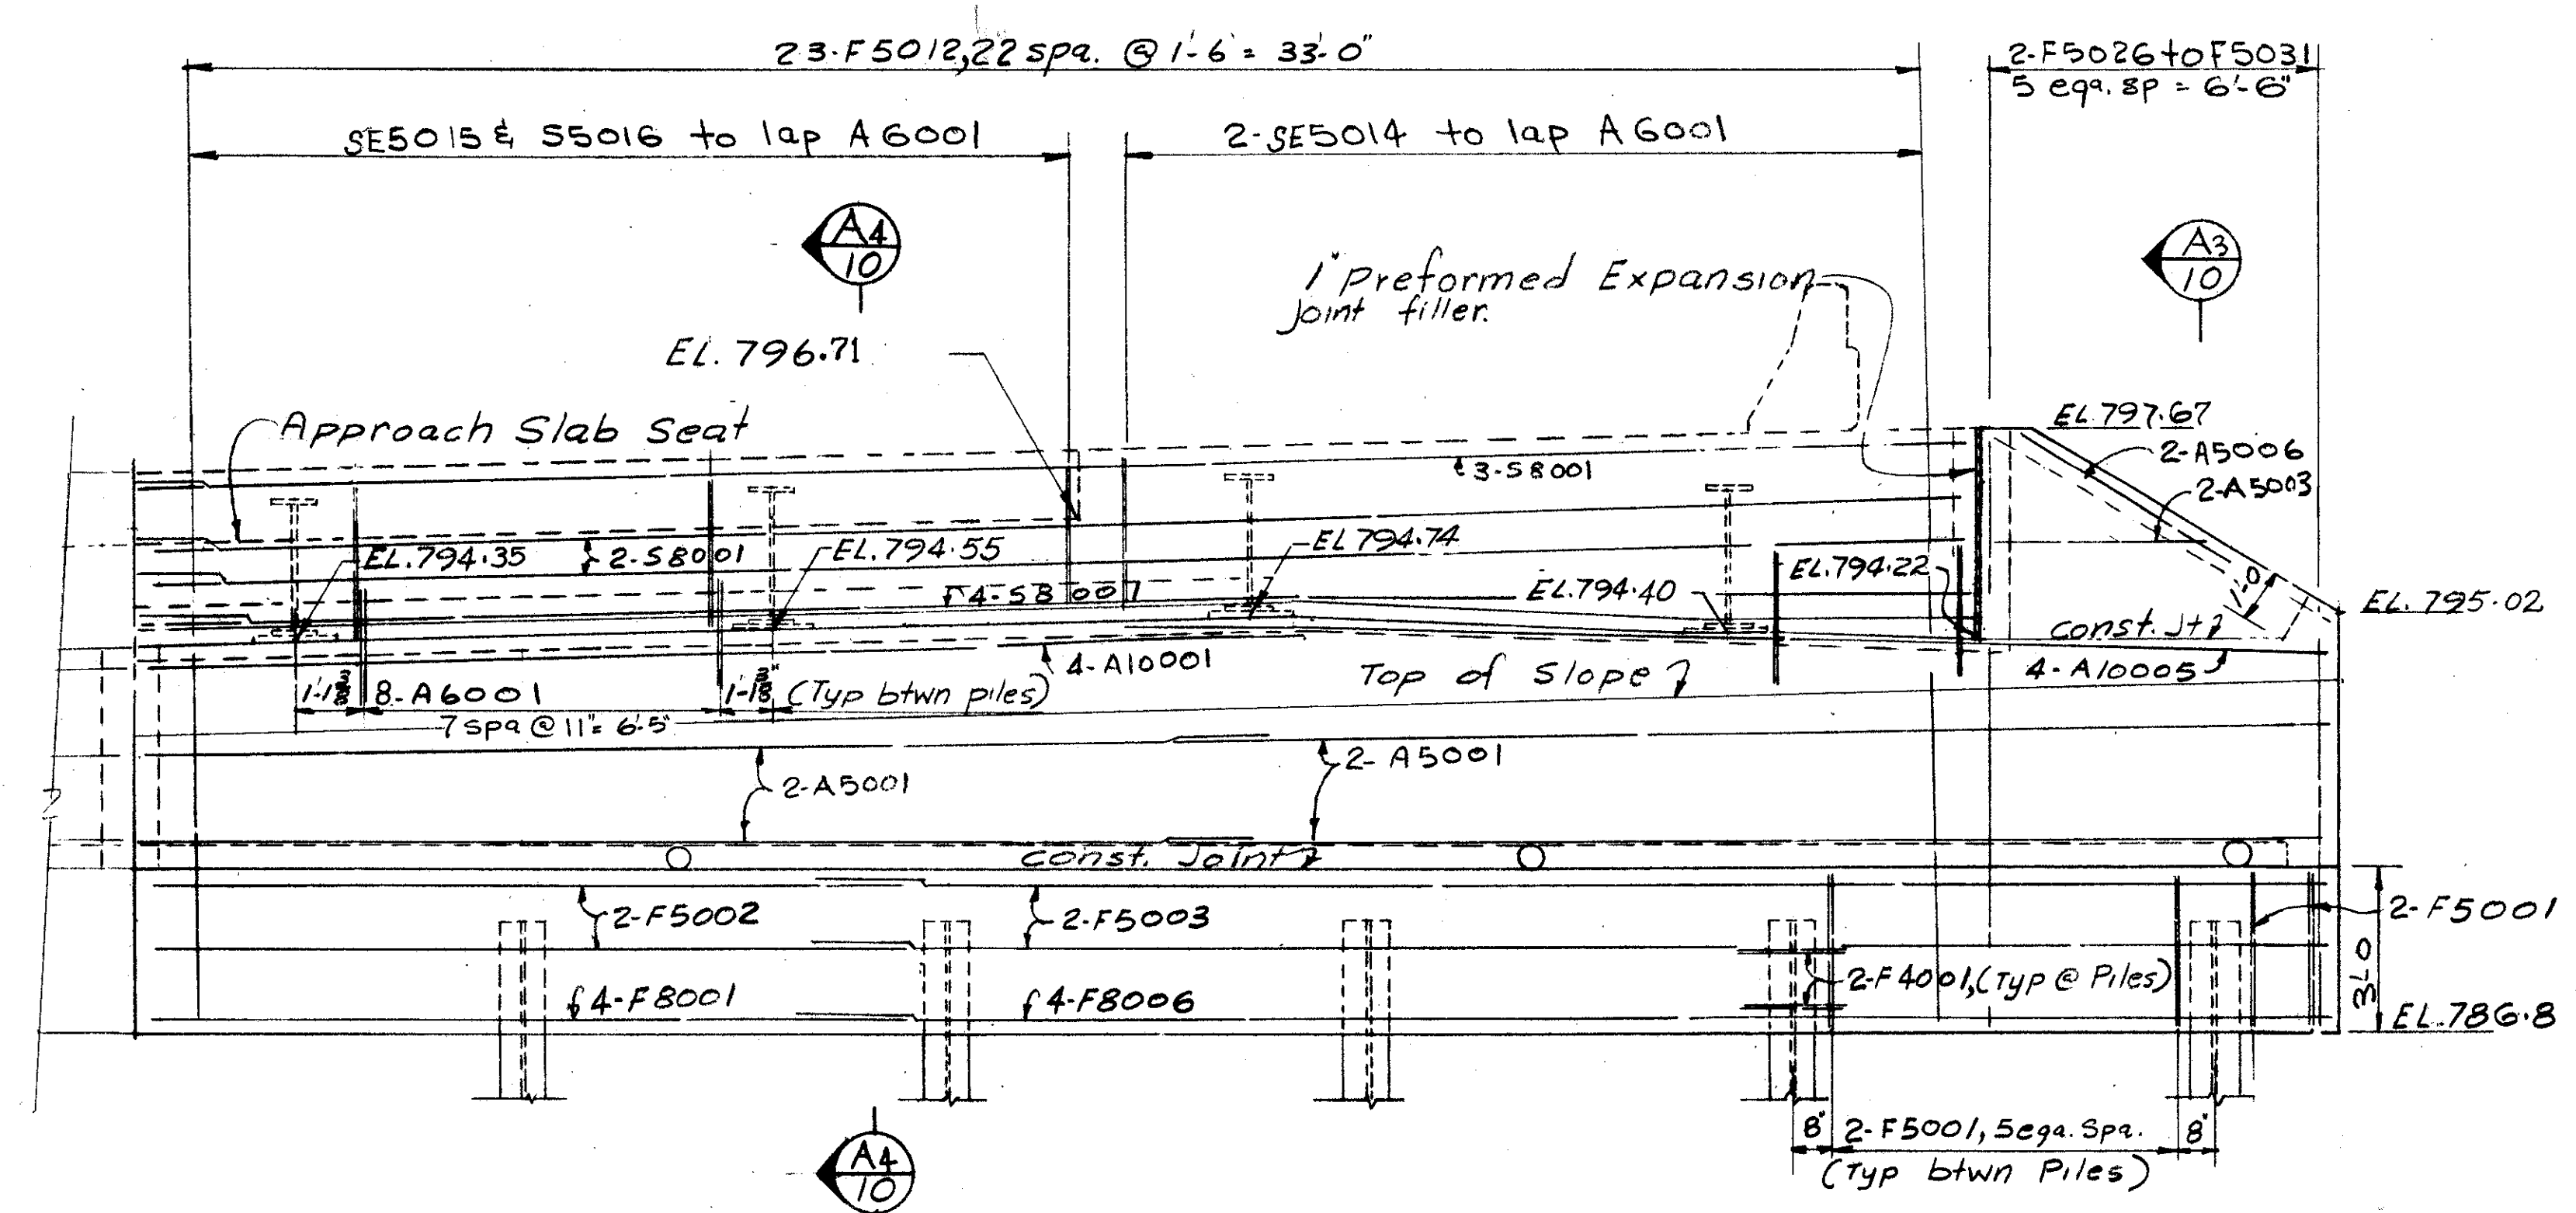 23-F5012,22 spa. @ 1'-6" = 33'-0"
2-F5026 to F5031
5 eqa. sp = 6'-6"
SE5015 & S5016 to lap A6001
2-SE5014 to lap A6001
A4
10
A3
10
1" Preformed Expansion
Joint filler.
EL. 796.71
Approach Slab Seat
EL 797.67
2-A5006
2-A5003
3-S8001
EL.794.35
2-S8001
EL.794.55
EL 794.74
EL.794.22
4-S8001
EL.794.40
1'-0
EL. 795.02
const. Jt
4-A10001
4-A10005
Top of Slope
1'-1 3/8"
8-A6001
1'-1 3/8"
(Typ btwn piles)
7 spa @ 11" = 6'-5"
2-A5001
2-A5001
const. Joint
2-F5002
2-F5003
2-F5001
3'-0
2-F4001,(Typ @ Piles)
4-F8001
4-F8006
EL.786.8
8"
2-F5001, 5 eqa. Spa.
8"
(Typ btwn Piles)
A4
10